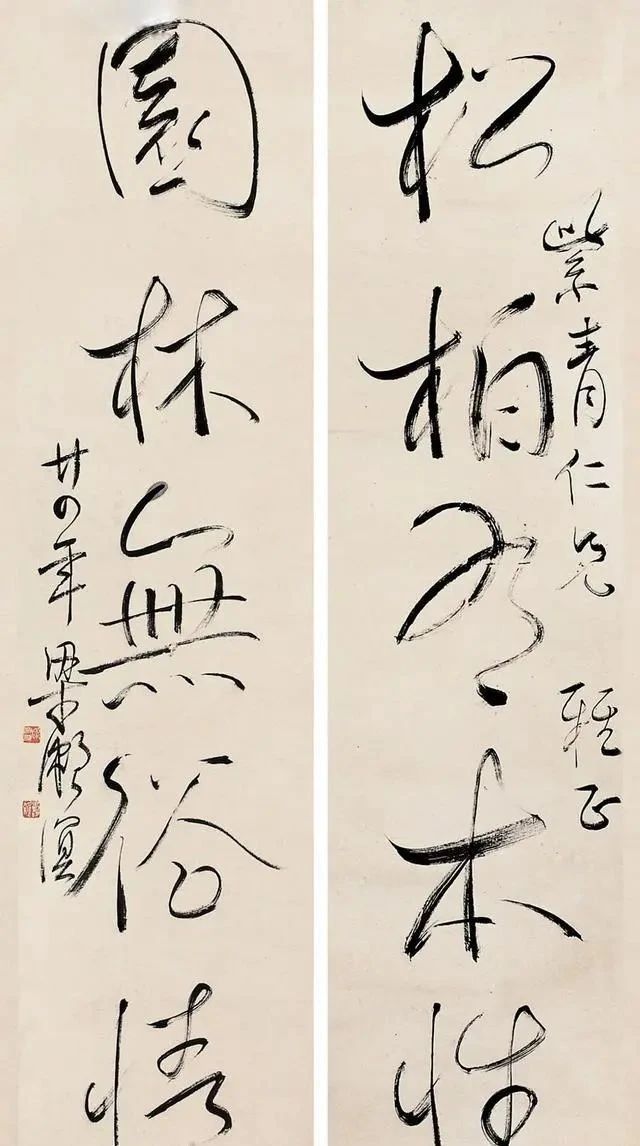 松柏有本性
紫青仁兄 雅正
園林無俗情
廿四年 梁漱溟